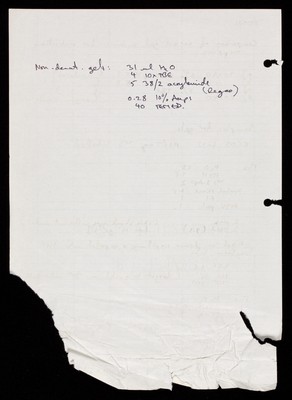 Non-denat. gels: 31 ml H2O
4 10x TBE
5 38/2 acrylamide
(Degas)
0.28 10% Amps
40 TEMED.